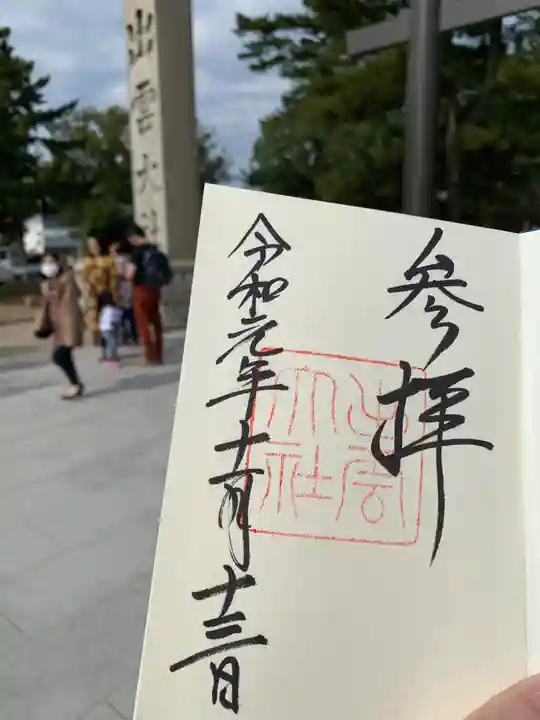 出雲大社
参拝
出雲
大社
令和元年十一月十三日